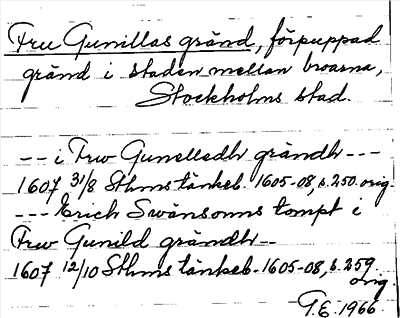 Fru Gunillas gränd, förpuppad
gränd i staden mellan broarna,
Stockholms stad.
-- i Frw Gunelledh grändh ---
1607 31/8 Sthms tänkeb. 1605-08, s. 250. orig.
--- Erich Swänsonns tompt i
Frw Gunild grändh --
1607 12/10 Sthms tänkeb. 1605-08, s. 259
orig.
G.E. 1966